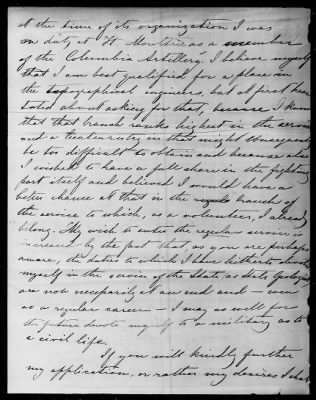 at the time of its organization I was
on duty at Ft. Moultrie as a member
of the Columbia Artillery. I believe myself
that I am best qualified for a place in
the topographical engineers, but at first hesi-
tated about asking for that, because I knew
that that branch ranks highest in the service
and a Lieutenancy in that might
be too difficult to obtain and because also
I wished to have a full share in the fighting
part itself and believed I would have a
better chance at that in the branch of
the service to which, as a volunteer, I already
belong. My wish to enter the regular service is
increased by the fact that, as you are perhaps
aware, the duties to which I have hitherto devoted
myself in the service of the State, as State Geologist
are now necessarily at an end and – even
as a regular career – I may as well for
the future devote myself to a military as to
a civil life.
If you will kindly further
my application, or rather my desires I shall